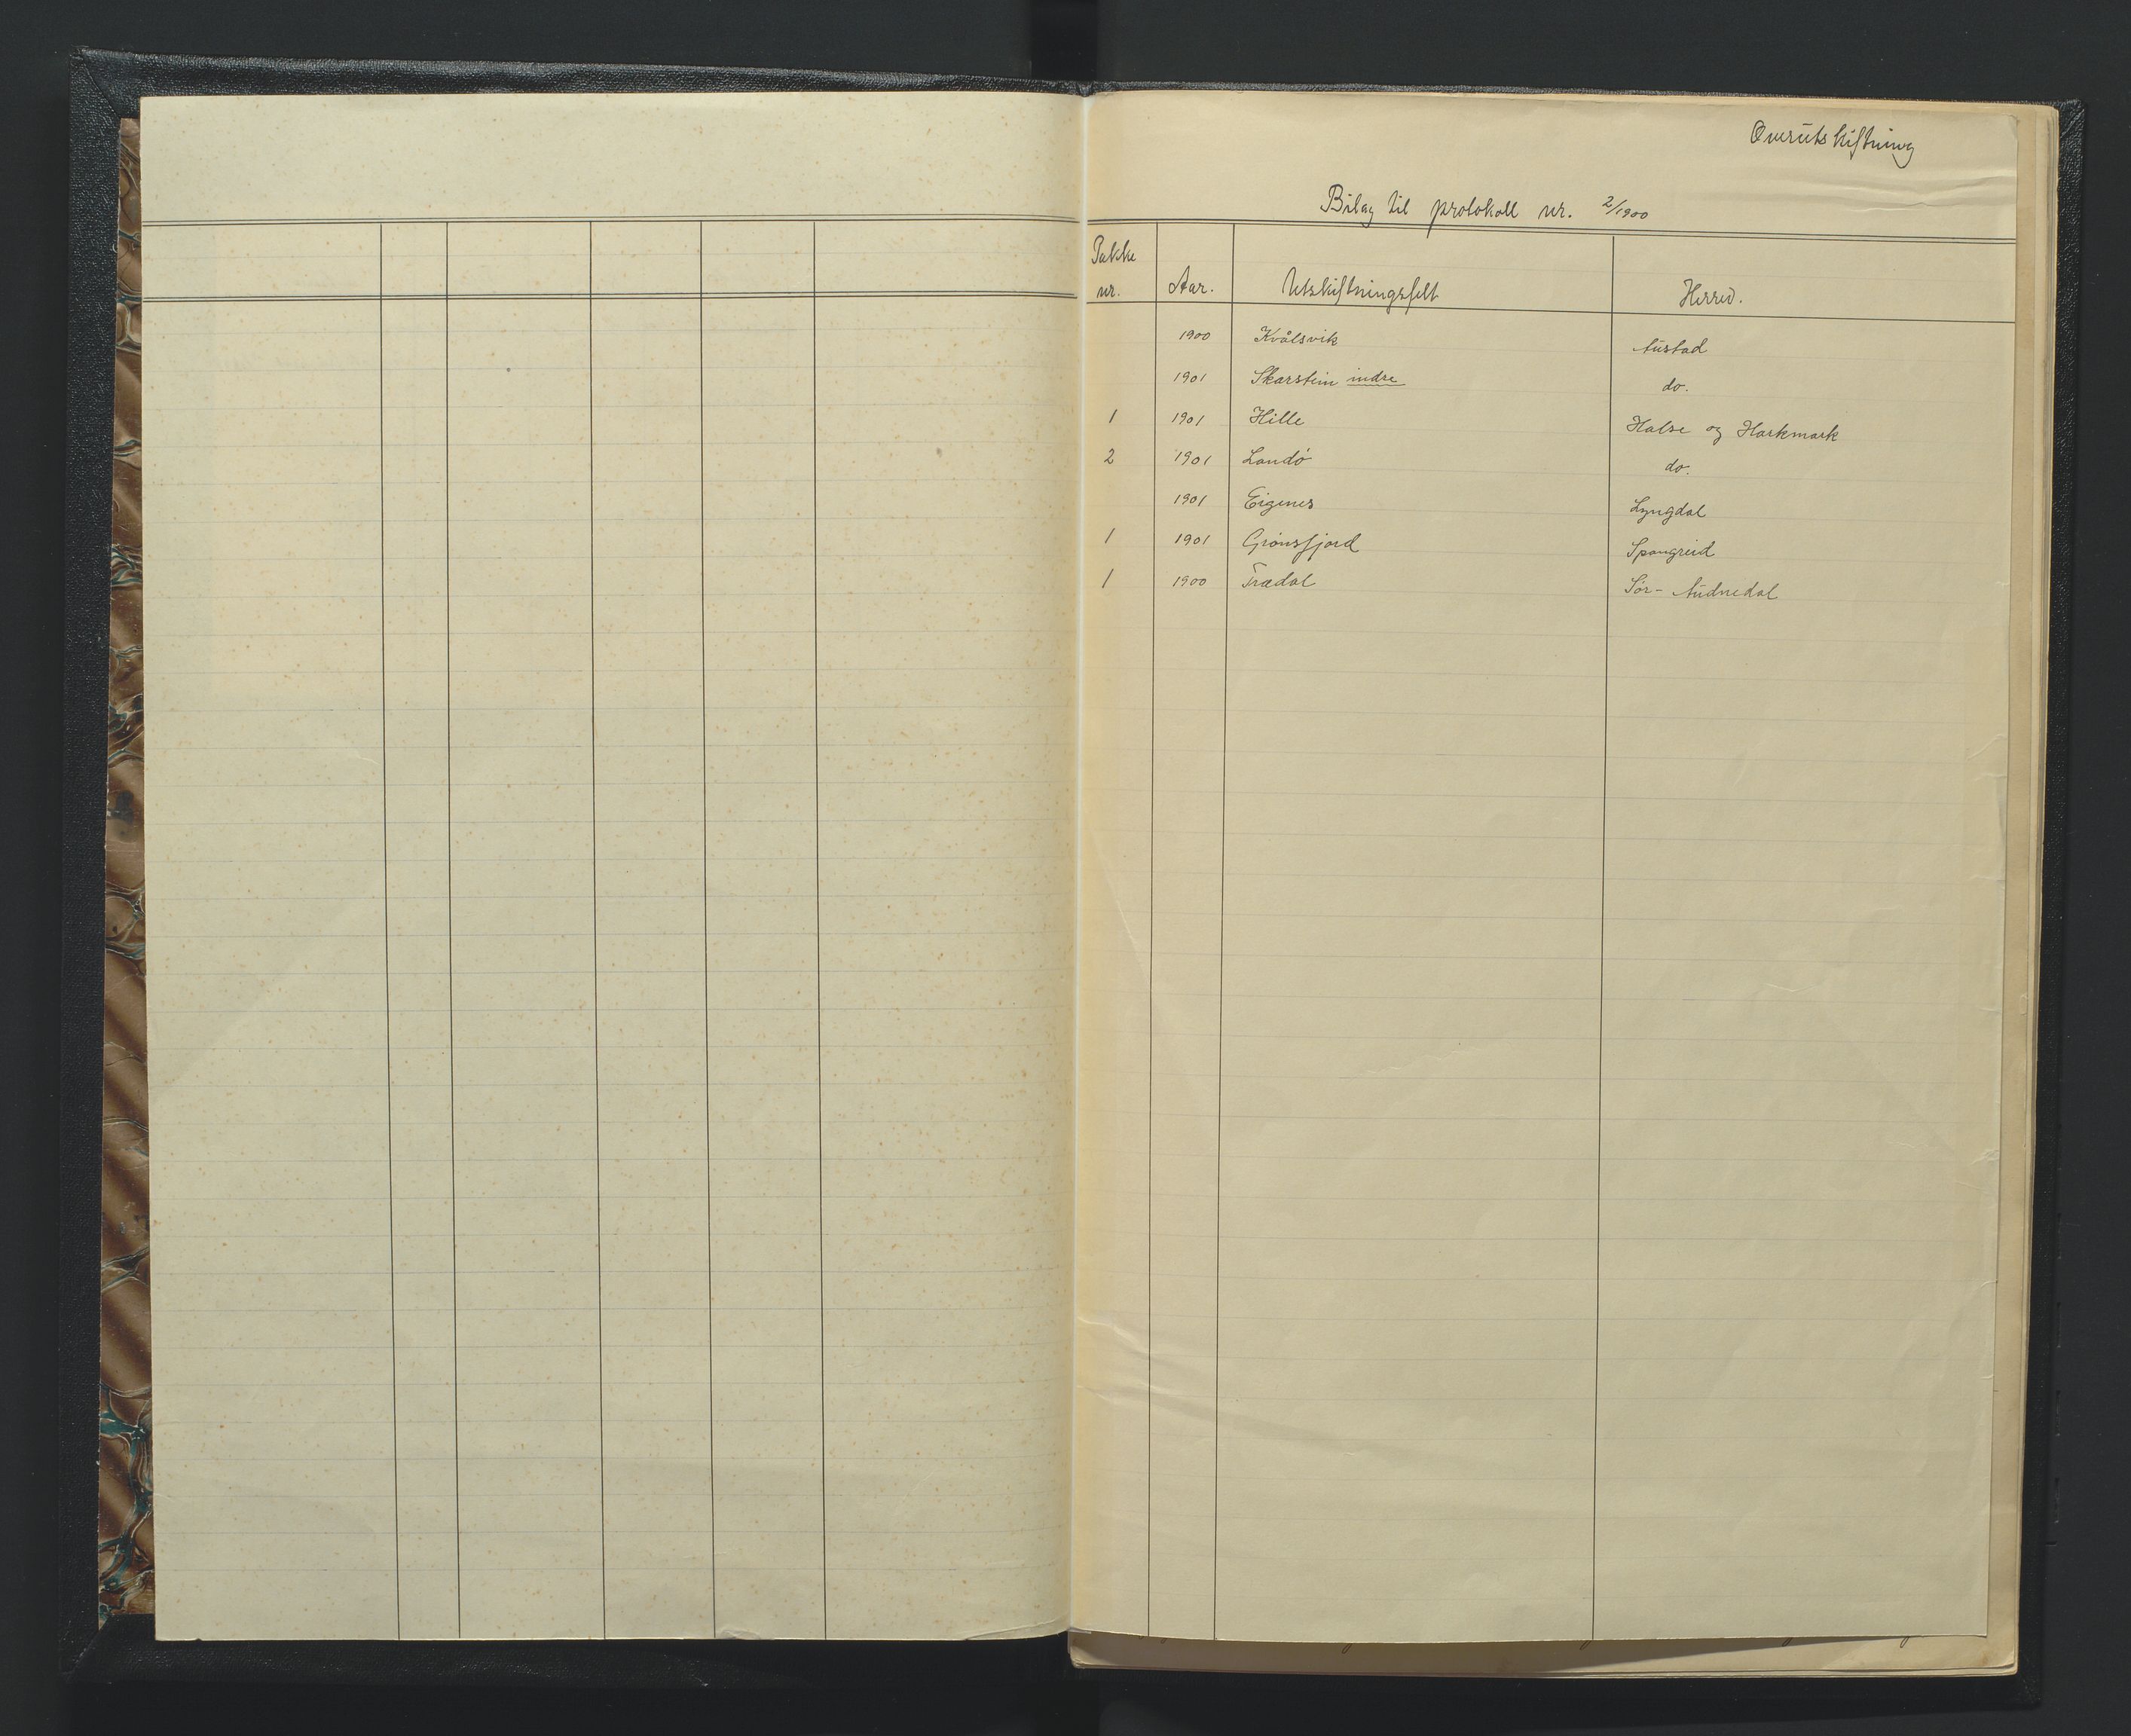 Overutskiftning
Bilag til protokoll nr. 2/1900
Pakke nr. Aar. Utskiftningsfelt Herred.
1900 Kvålsvik Austad
1901 Skarstein indre do.
1 1901 Hille Halse og Harkmark
2 1901 Landö do.
1901 Eigenes Lyngdal
1 1901 Grönsfjord Spangreid
1 1900 Trædal Sör-Audnedal